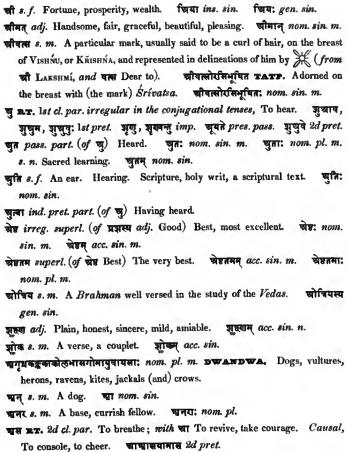 श्री s. f. Fortune, prosperity, wealth. श्रिया ins. sin. श्रियः gen. sin.
श्रीमत् adj. Handsome, fair, graceful, beautiful, pleasing. श्रीमान् nom. sin. m.
श्रीवत्स s. m. A particular mark, usually said to be a curl of hair, on the breast
of VISHṆU, or KṚISHṆA, and represented in delineations of him by (from
श्री LAKSHMÍ, and वत्स Dear to). श्रीवत्सोरसिभूषितः TATP. Adorned on
the breast with (the mark) Śrívatsa. श्रीवत्सोरसिभूषितः nom. sin. m.
श्रु RT. 1st cl. par. irregular in the conjugational tenses, To hear. शुश्राव,
शुश्रुम, शुश्रुवुः 1st pret. शृणु, शृण्वन्तु imp. श्रूयते pres. pass. शुश्रुवे 2d pret.
श्रुत pass. part. (of श्रु) Heard. श्रुतः nom. sin. m. श्रुताः nom. pl. m.
s. n. Sacred learning. श्रुतम् nom. sin.
श्रुति s. f. An ear. Hearing. Scripture, holy writ, a scriptural text. श्रुतिः
nom. sin.
श्रुत्वा ind. pret. part. (of श्रु) Having heard.
श्रेष्ठ irreg. superl. (of प्रशस्य adj. Good) Best, most excellent. श्रेष्ठः nom.
sin. m. श्रेष्ठम् acc. sin. m.
श्रेष्ठतम superl. (of श्रेष्ठ Best) The very best. श्रेष्ठतमम् acc. sin. m. श्रेष्ठतमाः
nom. pl. m.
श्रोत्रिय s. m. A Brahman well versed in the study of the Vedas. श्रोत्रियस्य
gen. sin.
श्लक्ष्ण adj. Plain, honest, sincere, mild, amiable. श्लक्ष्णम् acc. sin. n.
श्लोक s. m. A verse, a couplet. श्लोकम् acc. sin.
श्वगृध्रकङ्ककाकोलभासगोमायुवायसाः nom. pl. m. DWANDWA, Dogs, vultures,
herons, ravens, kites, jackals (and) crows.
श्वन् s. m. A dog. श्वा nom. sin.
श्वनर s. m. A base, currish fellow. श्वनराः nom. pl.
श्वस RT. 2d cl. par. To breathe; with आ To revive, take courage. Causal,
To console, to cheer. आश्वासयामास 2d pret.